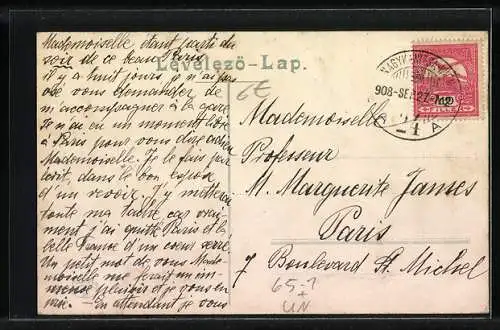 Mademoiselle, étant parti du
soir de ce beau Paris
il y a huit jours je n'ai pas
osé vous demander de
m'accompagner à la gare
Je n'ai eu un moment libre
à Paris pour vous dire adieu
Mademoiselle. Je le fais par
écrit, dans le bon espoir
d'un revoir. J'y mettrai
toute ma
ment j'ai quitté Paris et la
belle France d'un cœur serré.
Un petit mot de vous Made-
moiselle me ferait un im-
mense plaisir et je vous en
prie. — En attendant je vous
Levelező-Lap.
6€
908 SEP 27
A
Mademoiselle
Professeur
M. Marguerite James
Paris
7 Boulevard St. Michel
65-1
+
UN